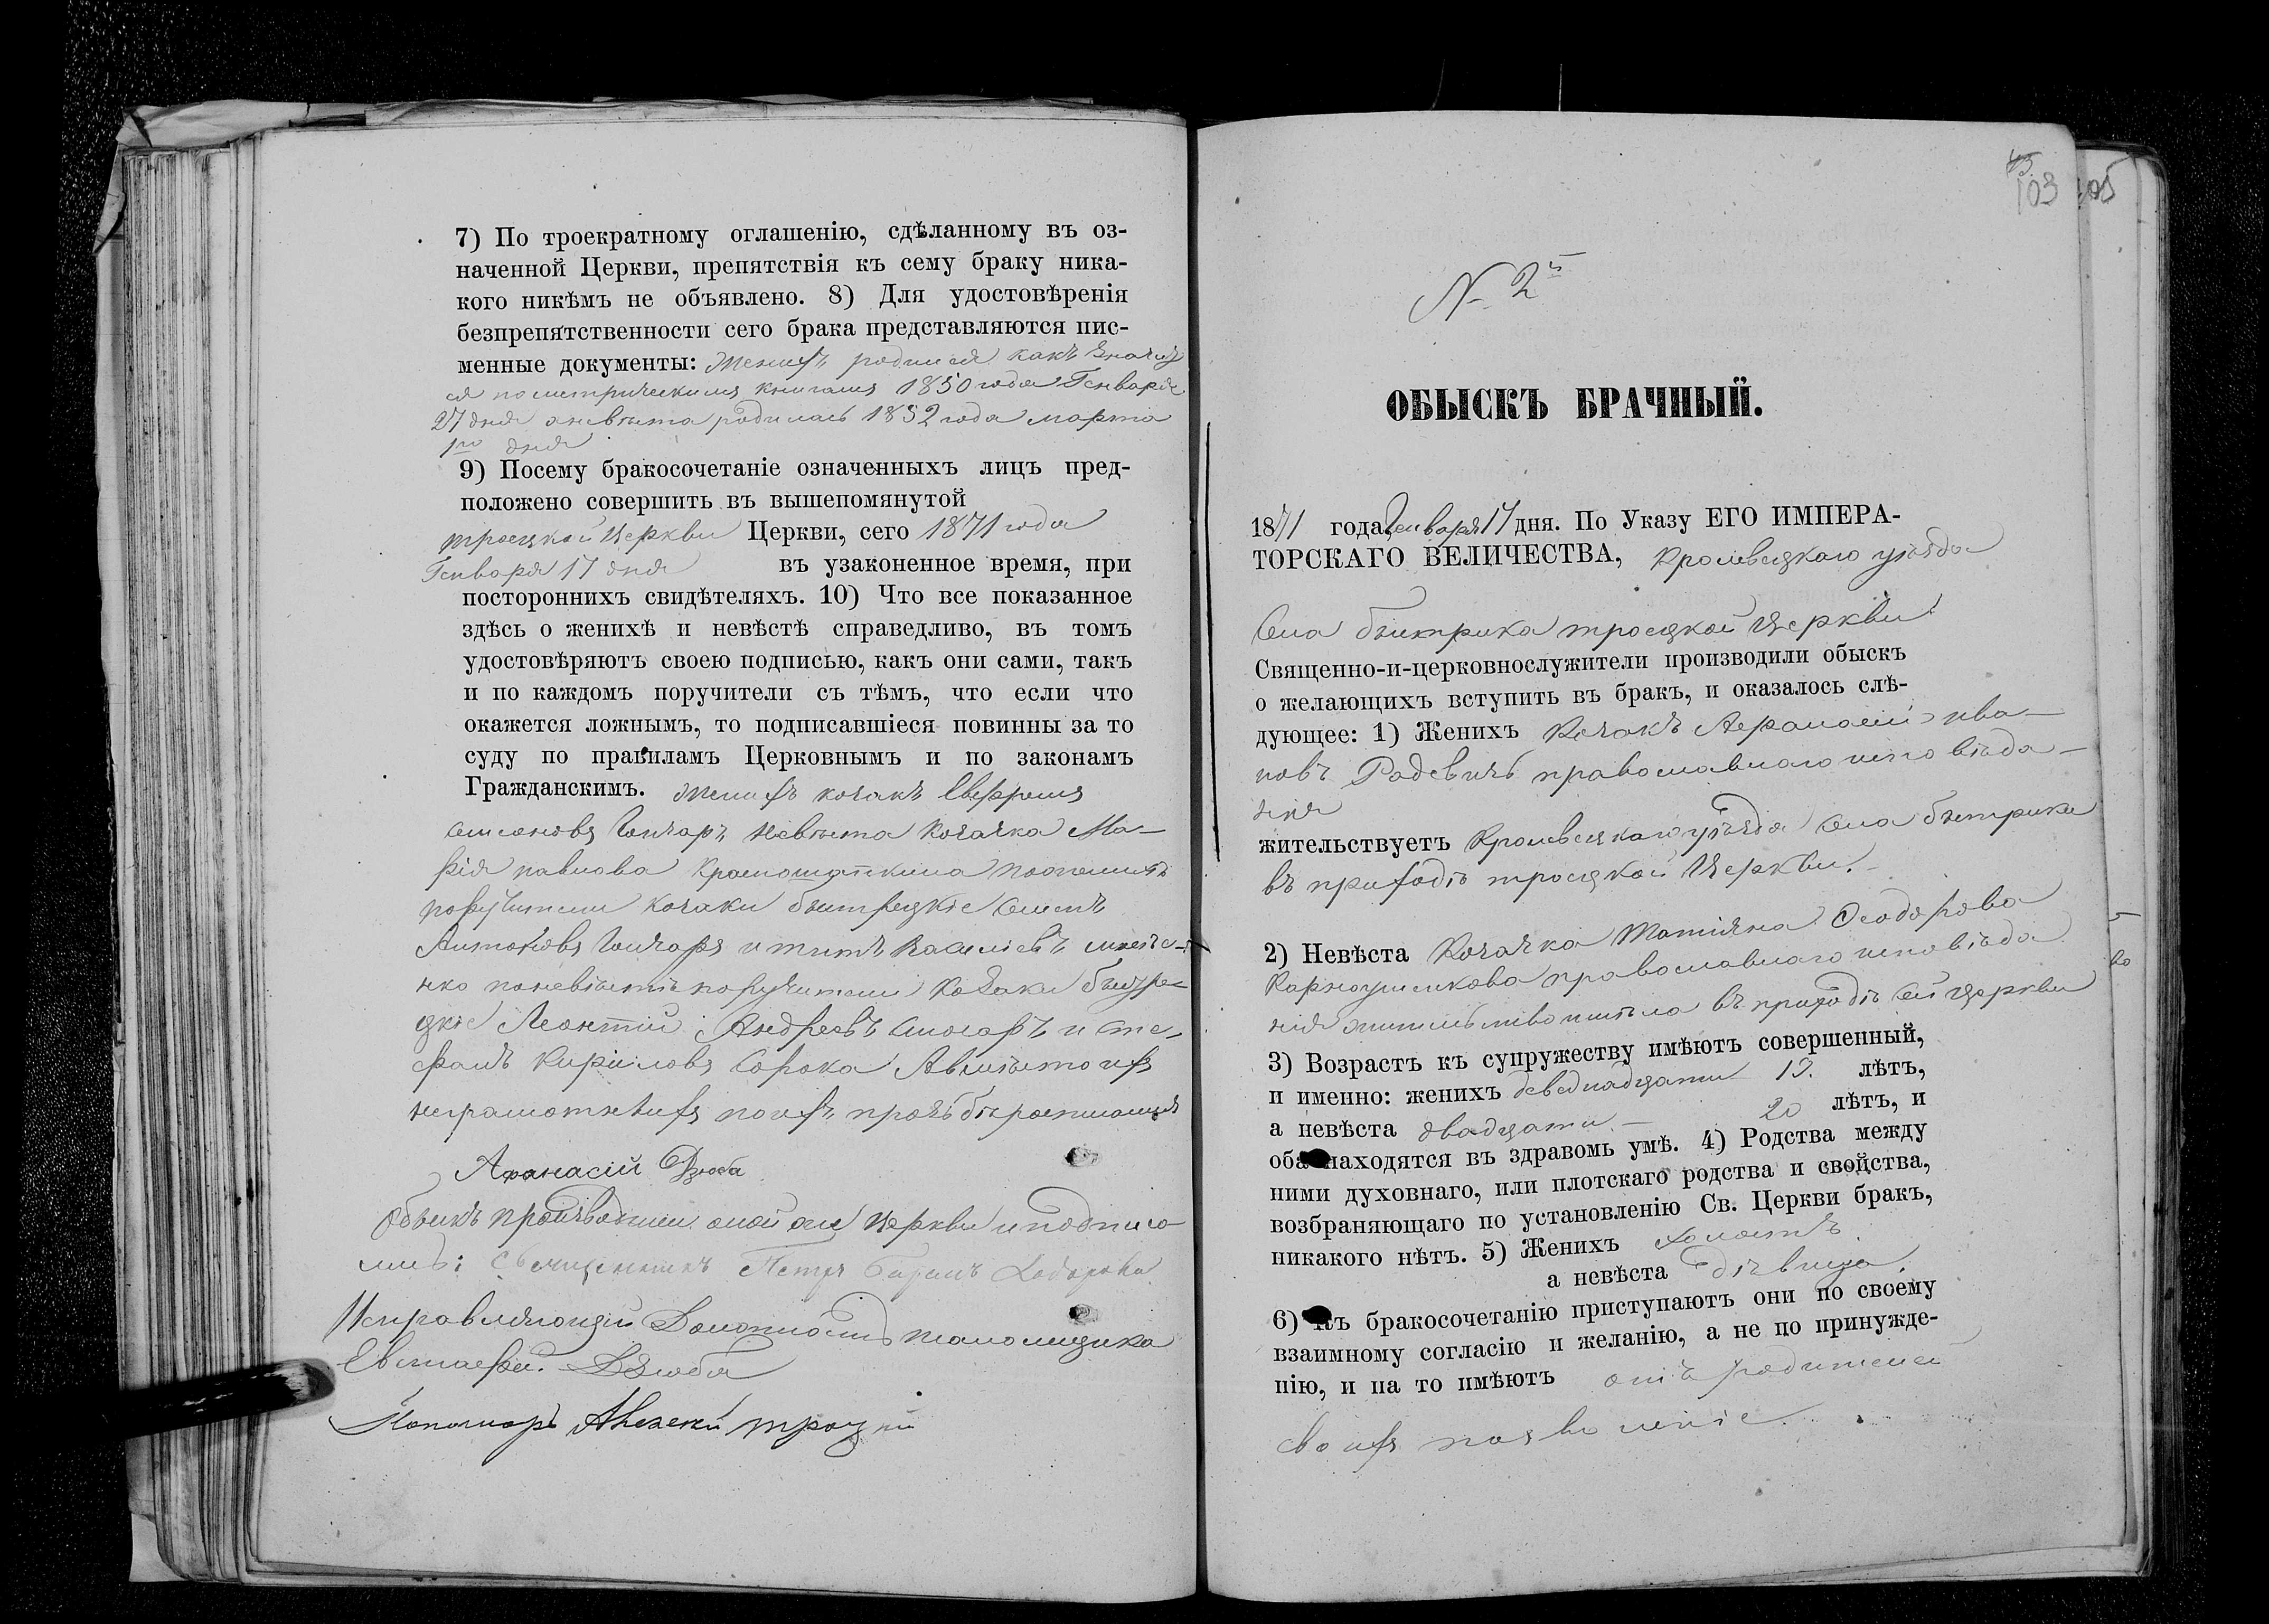 7) По троекратному оглашенію, сдѣланному въ оз-
наченной Церкви, препятствія къ сему браку ника-
кого никѣмъ не объявлено. 8) Для удостовѣренія
безпрепятственности сего брака представляются пис-
менные документы: женихъ родился какъ значит
ся по метрическимъ книгамъ 1850 года Генваря
27 дня а невѣста родилась 1852 года марта
1го дня
9) Посему бракосочетаніе означенныхъ лицъ пред-
положено совершить въ вышепомянутой
троецкой Церкви Церкви, сего 1871 года
Генваря 17 дня въ узаконенное время, при
постороннихъ свидѣтеляхъ. 10) Что все показанное
здѣсь о женихѣ и невѣстѣ справедливо, въ томъ
удостовѣряютъ своею подписью, какъ они сами, такъ
и по каждомъ поручители съ тѣмъ, что если что
окажется ложнымъ, то подписавшіеся повинны за то
суду по правиламъ Церковнымъ и по законамъ
Гражданскимъ. женихъ козакъ Евфремъ
Гончаръ невѣста козачка Ма-
рія павлова
поручители козаки быстрецкіе
Антоновъ Гончаръ и титъ василіевъ
нко поневѣстѣ поручители козаки быстре-
цкіе Леонтій Андреевъ и Сте-
фанъ Кириловъ Сорока Авмѣсто ихъ
неграмотныхъ поихъ прозьбѣ росписался
Афанасій Дзюба
Обыскъ производили оной же Церкви и подписа
лись: Священникъ Петръ
Исправляющій Должность псаломщика
Евстафій Дзюба
Пономарь Алексѣй троцкій
45
103 105
N 2й
ОБЫСКЪ БРАЧНЫЙ.
1871 года Генваря 17 дня. По Указу ЕГО ИМПЕРА-
ТОРСКАГО ВЕЛИЧЕСТВА, Кролевецкаго уѣзда
Села быстрика троецкой Церкви
Священно-и-церковнослужители производили обыскъ
о желающихъ вступить въ бракъ, и оказалось слѣ-
дующее: 1) Женихъ Козакъ Аѳанасій ива-
новъ Радевичъ православнаго исповѣда-
нія
жительствуетъ Кролевецкаго уѣзда Села быстрика
въ приходѣ троецкой Церкви.
2) Невѣста Козачка Татіяна Ѳеодорова
Карноушенкова православнаго исповѣда
нія жительство имѣла въ приходѣ сей Церкви
3) Возрастъ къ супружеству имѣютъ совершенный,
и именно: женихъ деведнадцати 19. лѣтъ,
а невѣста двадцати 20 лѣтъ, и
оба находятся въ здравомъ умѣ. 4) Родства между
ними духовнаго, или плотскаго родства и свойства,
возбраняющаго по установленію Св. Церкви бракъ,
никакого нѣтъ. 5) Женихъ холостъ
а невѣста дѣвица.
6) Къ бракосочетанію приступаютъ они по своему
взаимному согласію и желанію, а не по принужде-
нію, и на то имѣютъ отъ родителей
своихъ позволеніе